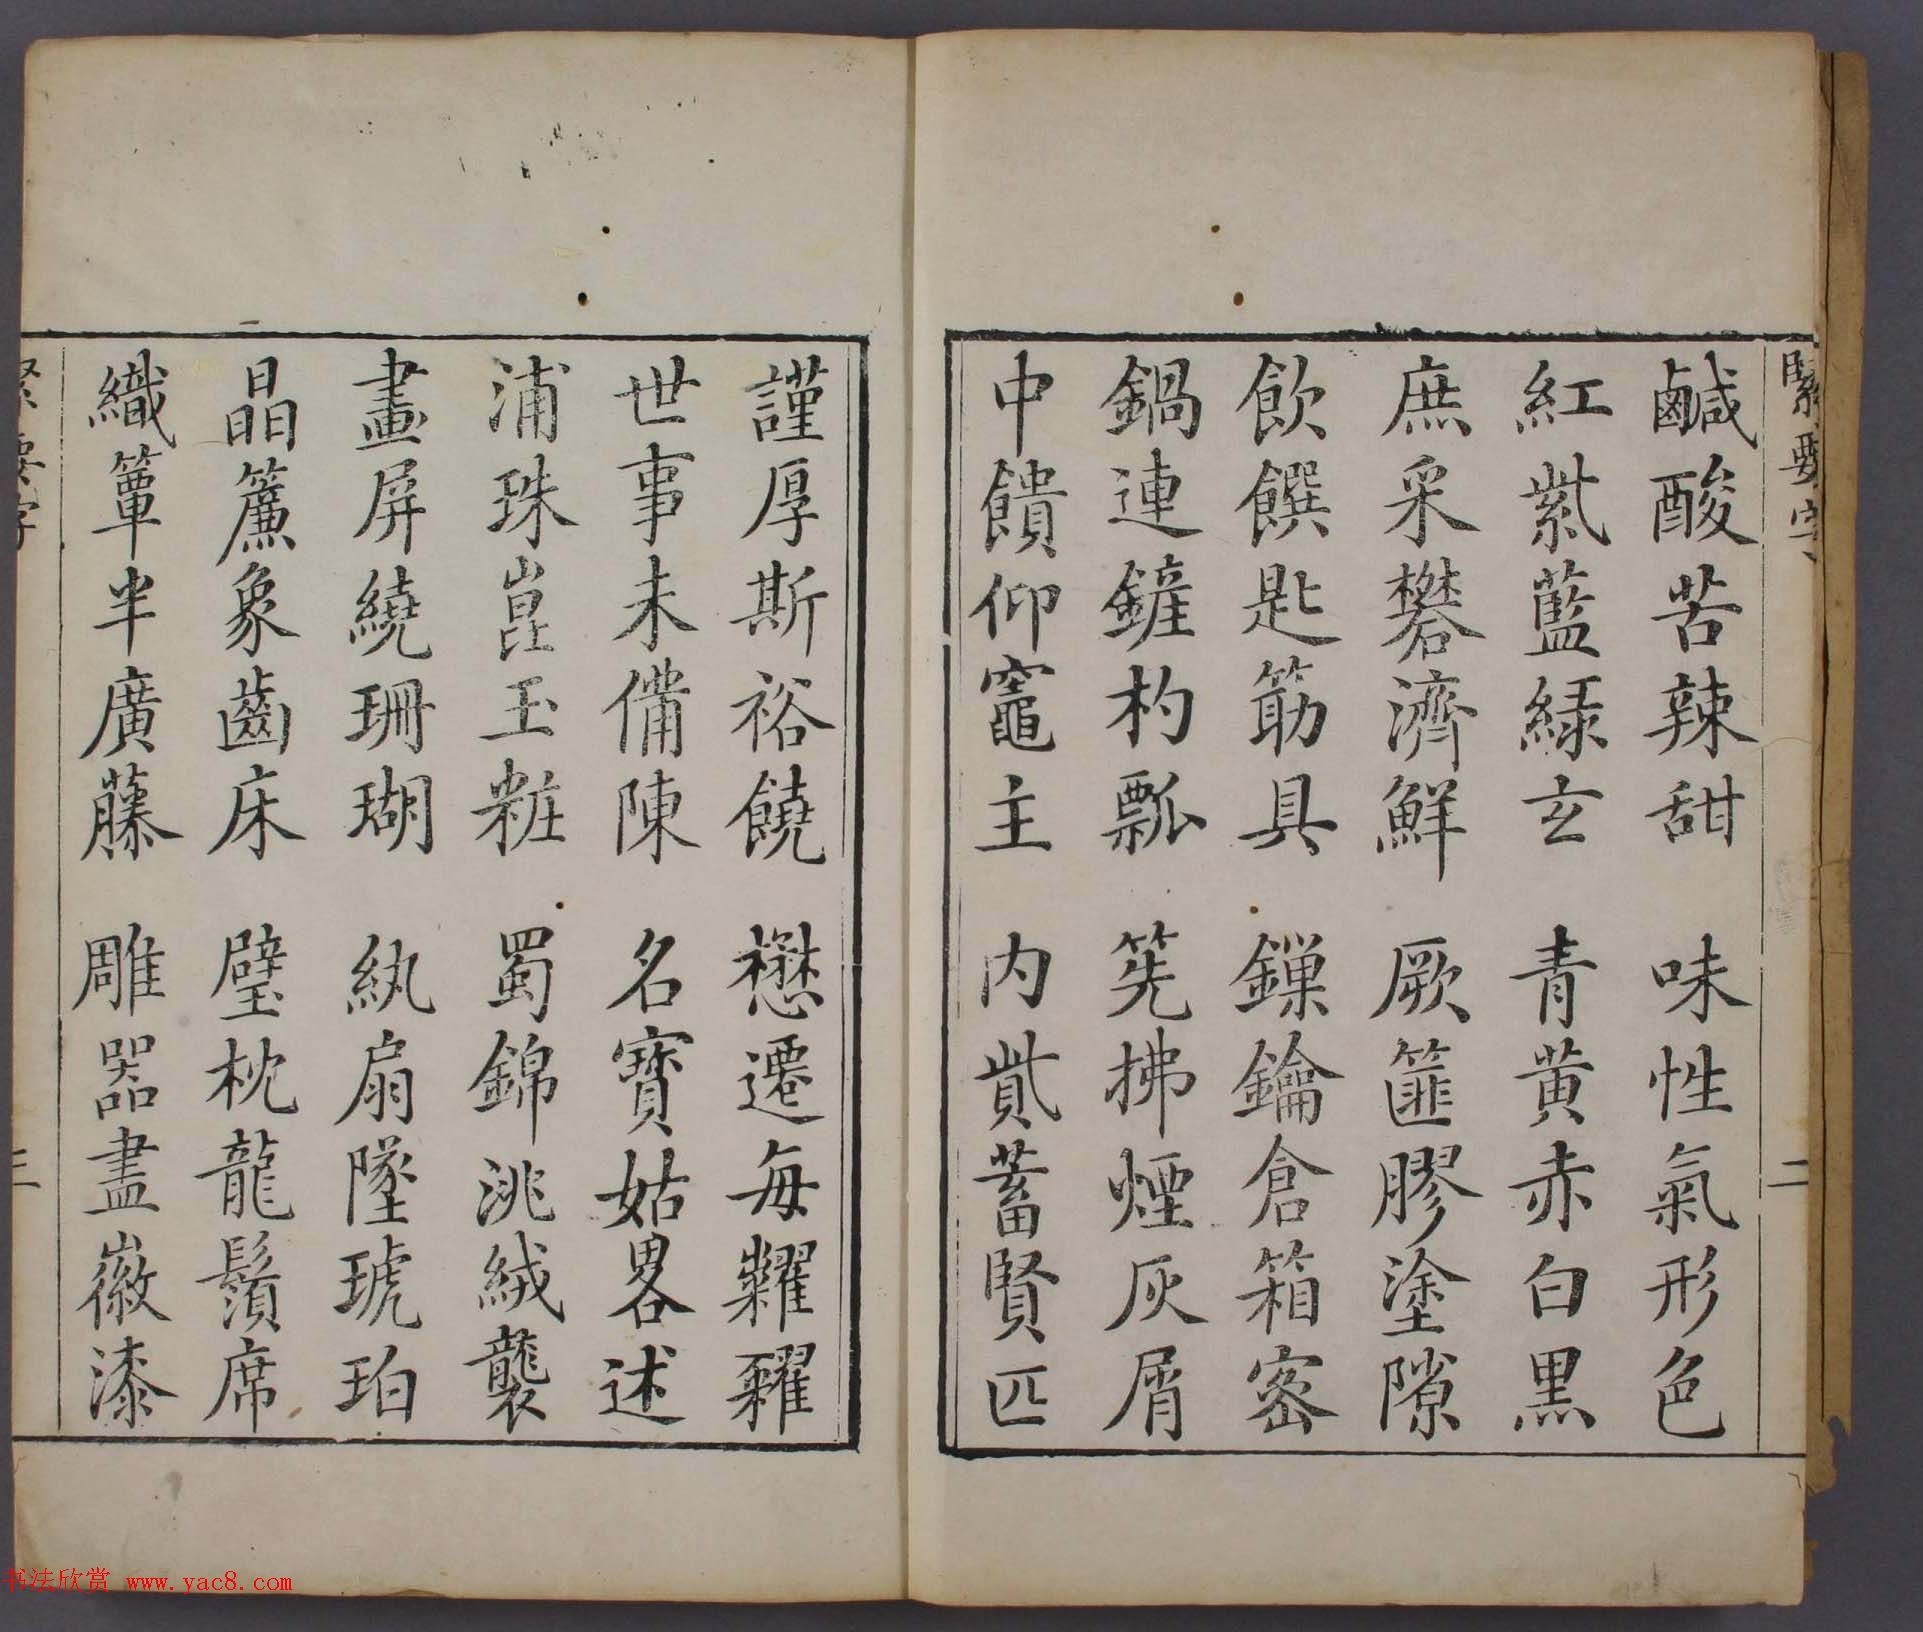 緊要字
二
鹹酸苦辣甜 味性氣形色
紅紫藍綠玄 青黄赤白黒
庶采礬濟鮮 厥篚膠塗隙
飲饌匙筯具 鏁鑰倉箱宻
鍋連鏟杓瓢 筅拂煙灰屑
中饋仰竈主 内貲蓄賢匹
謹厚斯裕饒 懋遷每糶糴
世事未備陳 名寳姑畧述
浦珠崑玉粧 蜀錦洮絨襲
畫屏繞珊瑚 紈扇墜琥珀
晶簾象齒床 璧枕龍鬚席
織簟半廣藤 雕器盡徽漆
緊要字
三
书法欣赏 www.yac8.com